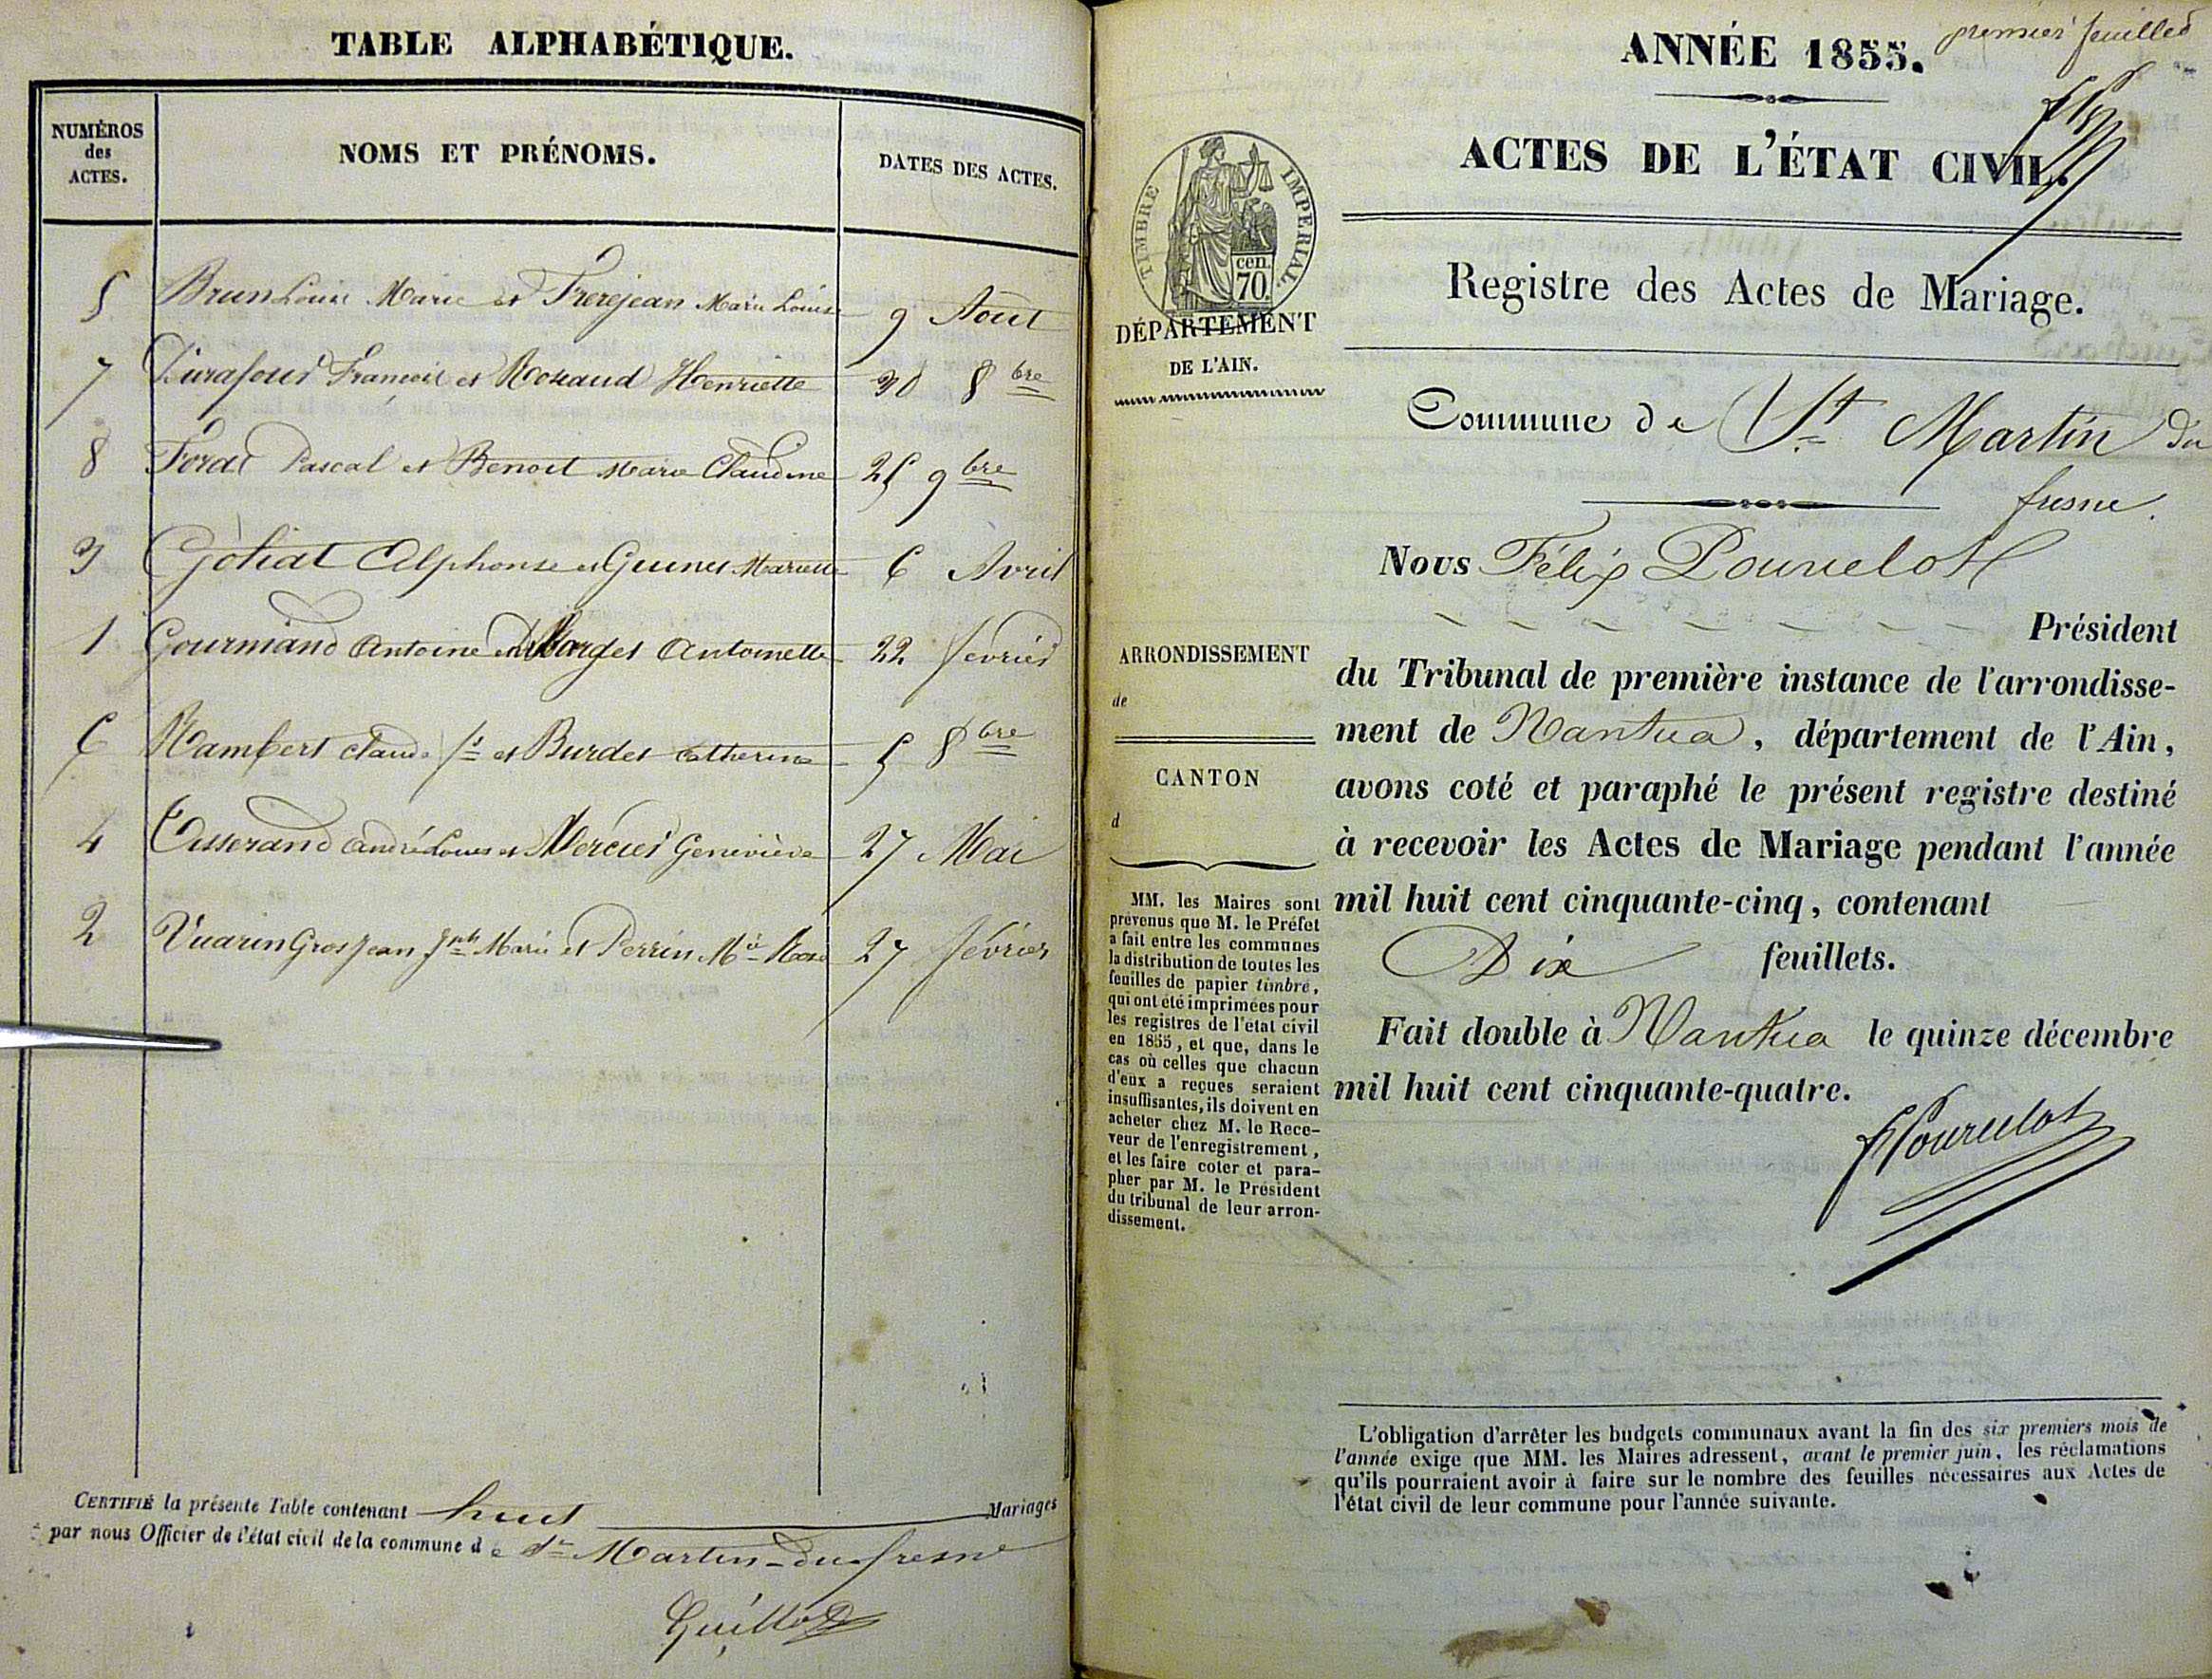 TABLE ALPHABÉTIQUE.
NUMÉROS
des
ACTES.
NOMS ET PRÉNOMS.
DATES DES ACTES.
5 Brun Louis Marie et Frerejean Marie Louise 9 Août
7 Durafour François et Rosaud Henriette 30 8bre
8 Forat Pascal et Benoit Marie Claudine 25 9bre
3 Goliat Alphonse et Guines Mariette 6 Avril
1 Gourmand Antoine et Antoinette 22 février
6 Rambert Claude fs et Burdet Catherine 5 8bre
4 Tisserand André Louis et Mercier Geneviève 27 Mai
2 Vuarin Grosjean Jph Marie et Perrin Mie Rose 27 février
CERTIFIÉ la présente Table contenant huit Mariages
par nous Officier de l'état civil de la commune de St Martin-du-fresne
Guillot
premier feuillet
ANNÉE 1855.
ACTES DE L'ÉTAT CIVIL.
TIMBRE IMPERIAL
cen.
70.
Registre des Actes de Mariage.
DÉPARTEMENT
DE L'AIN.
Commune de St Martin du
fresne.
Nous Félix Pourcelot
Président
ARRONDISSEMENT
de
du Tribunal de première instance de l'arrondisse-
ment de Nantua, département de l'Ain,
CANTON
d
avons coté et paraphé le présent registre destiné
à recevoir les Actes de Mariage pendant l'année
mil huit cent cinquante-cinq, contenant
Dix feuillets.
Fait double à Nantua le quinze décembre
mil huit cent cinquante-quatre.
FPourcelot
MM. les Maires sont
prévenus que M. le Préfet
a fait entre les communes
la distribution de toutes les
feuilles de papier timbré,
qui ont été imprimées pour
les registres de l'état civil
en 1855, et que, dans le
cas où celles que chacun
d'eux a reçues seraient
insuffisantes, ils doivent en
acheter chez M. le Rece-
veur de l'enregistrement,
et les faire coter et para-
pher par M. le Président
du tribunal de leur arron-
dissement.
L'obligation d'arrêter les budgets communaux avant la fin des six premiers mois de
l'année exige que MM. les Maires adressent, avant le premier juin, les réclamations
qu'ils pourraient avoir à faire sur le nombre des feuilles nécessaires aux Actes de
l'état civil de leur commune pour l'année suivante.